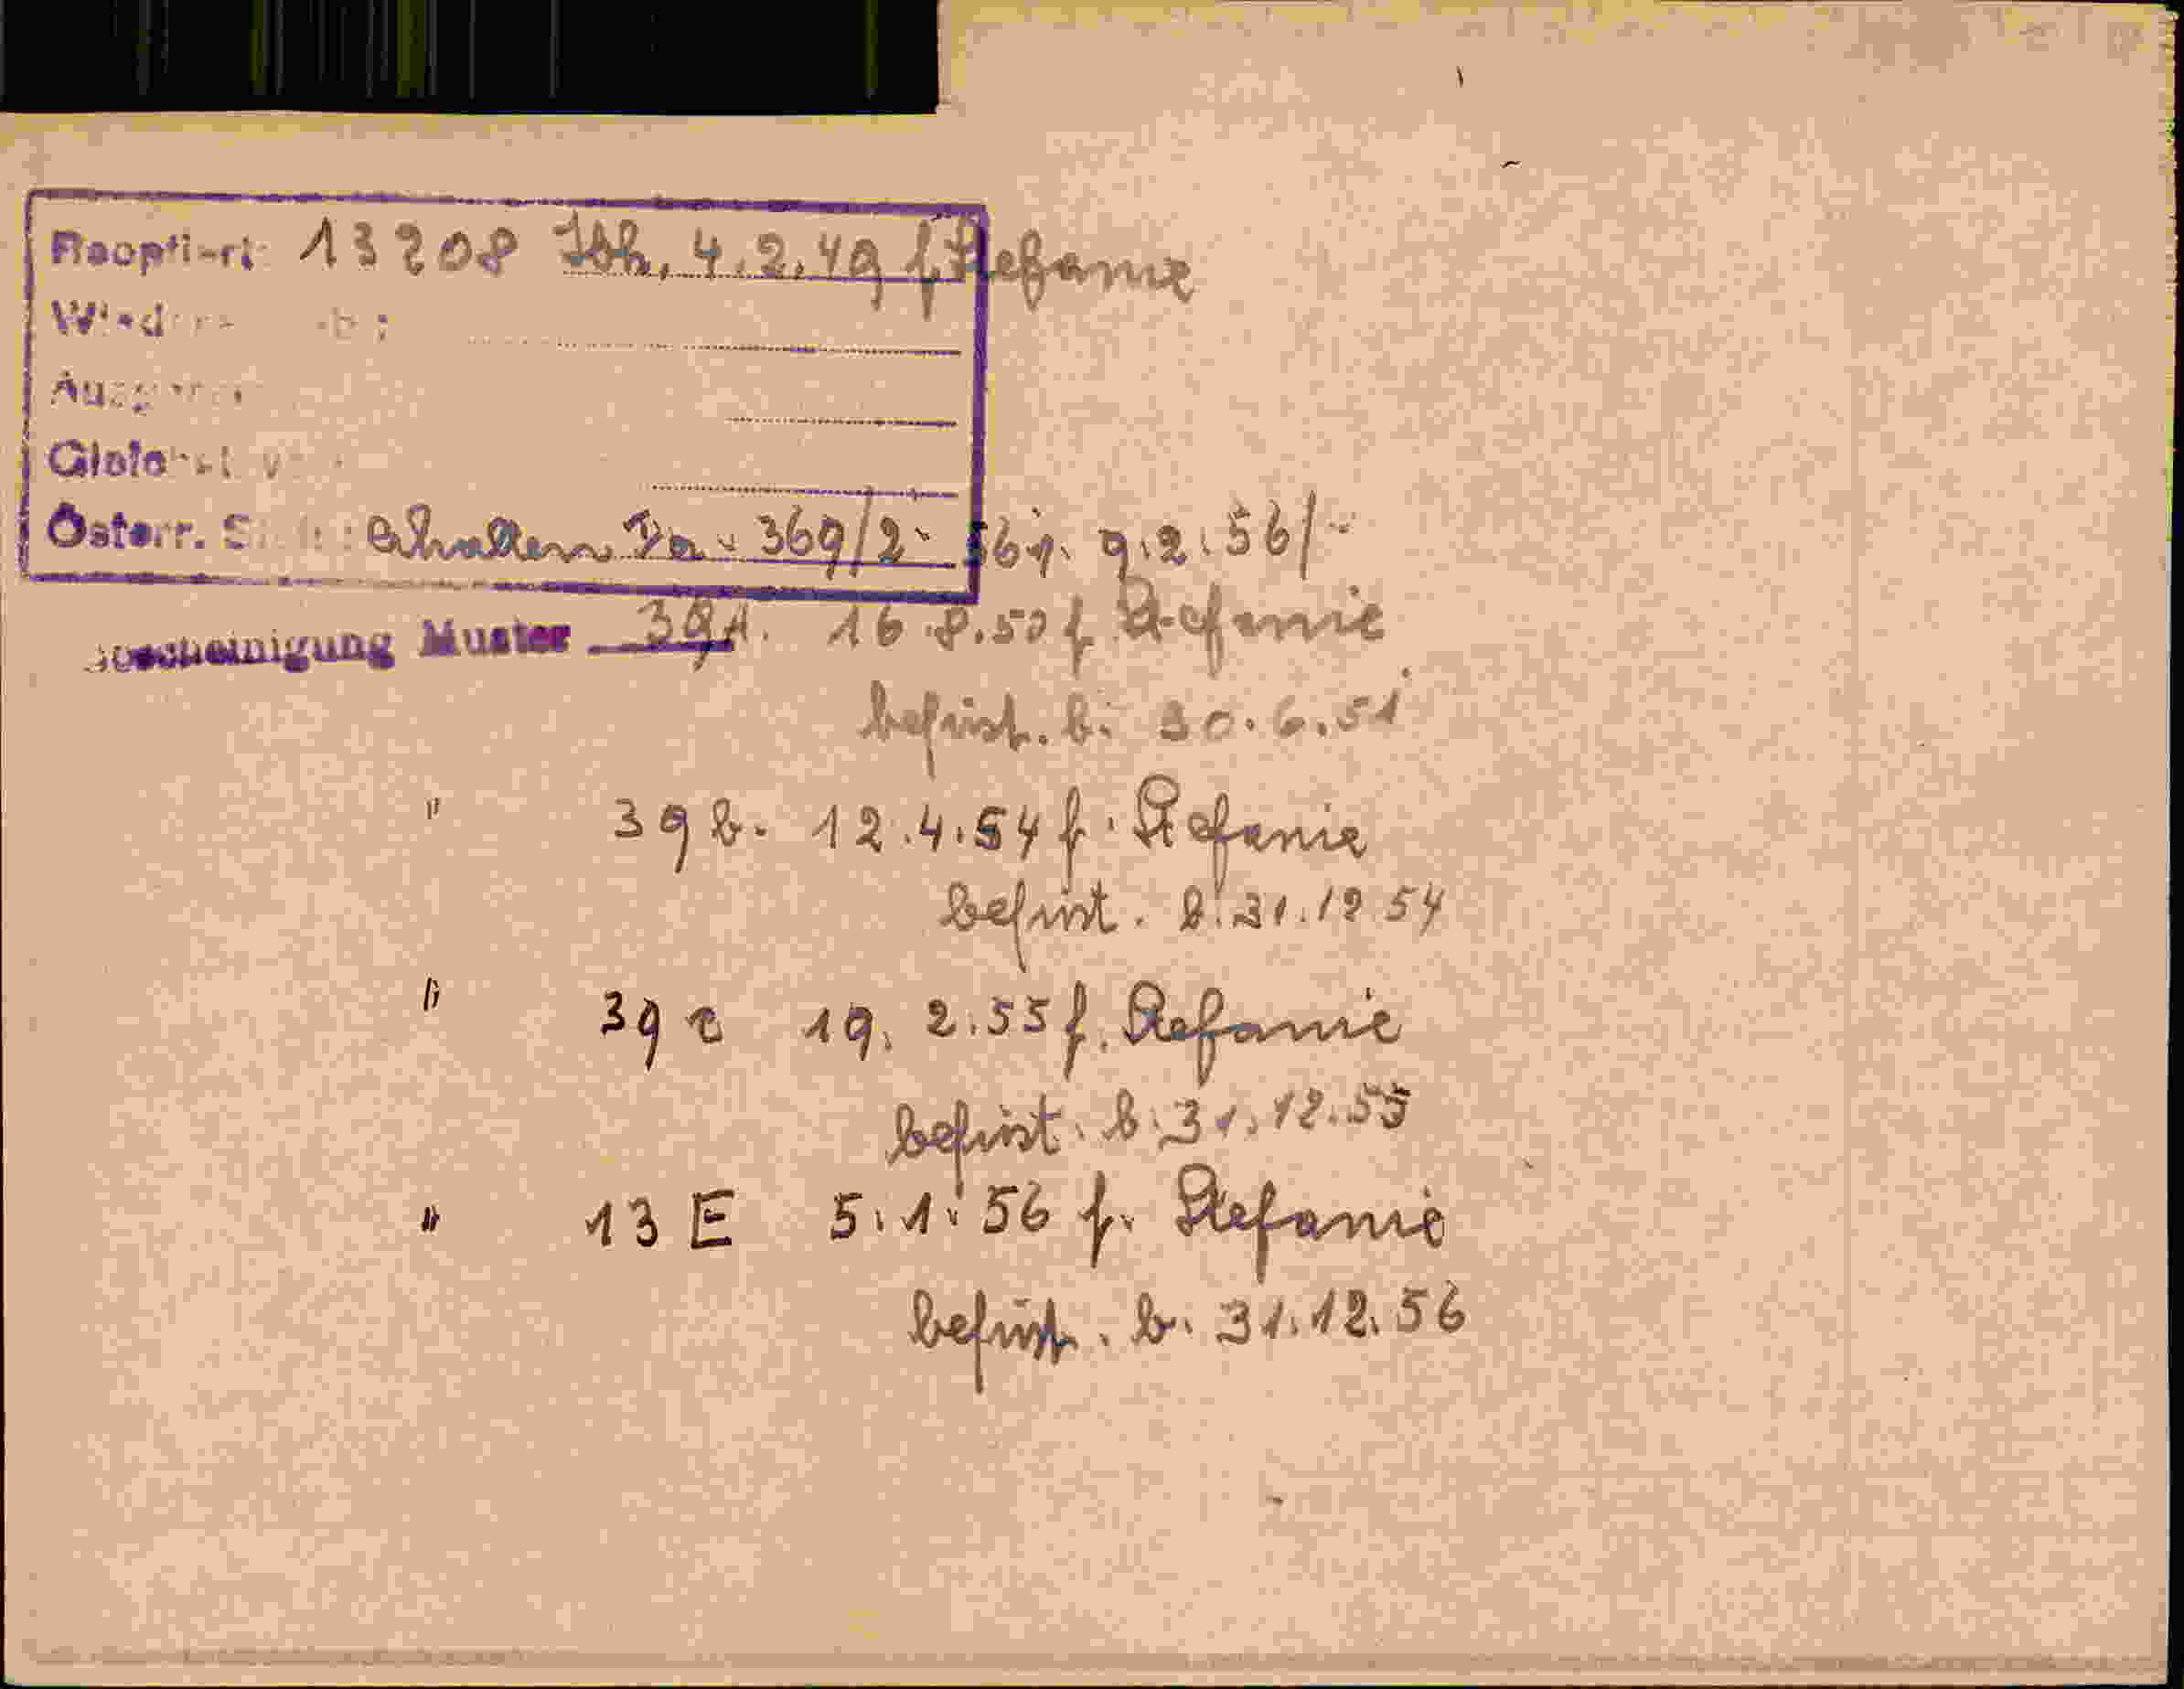 Reoptiert: 13208 Ibk. 4.2.49 f. Stefanie
Österr. erhalten Ia- 369/2- 56 v. 9.2.56/-
Bescheinigung Muster 39A. 16.8.50 f. Stefanie
befrist. b. 30.6.51
" 39 b. 12.4.54 f. Stefanie
befrist. b. 31.12 54
" 39 c 19. 2.55 f. Stefanie
befrist. b. 31.12.55
" 13 E 5.1.56 f. Stefanie
befrist. b. 31.12.56